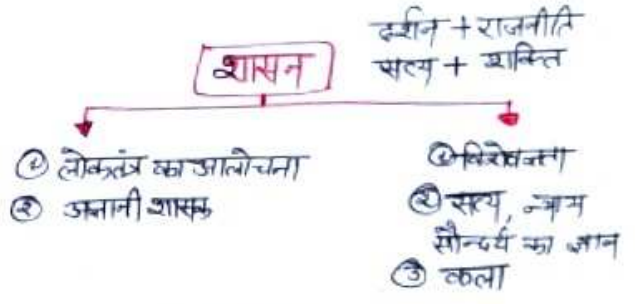 दर्शन + राजनीति
सत्य + शक्ति
शासन
① लोकतंत्र का आलोचना
② अज्ञानी शासक
① विशेषज्ञता
② सत्य, न्याय
सौन्दर्य का ज्ञान
③ कला